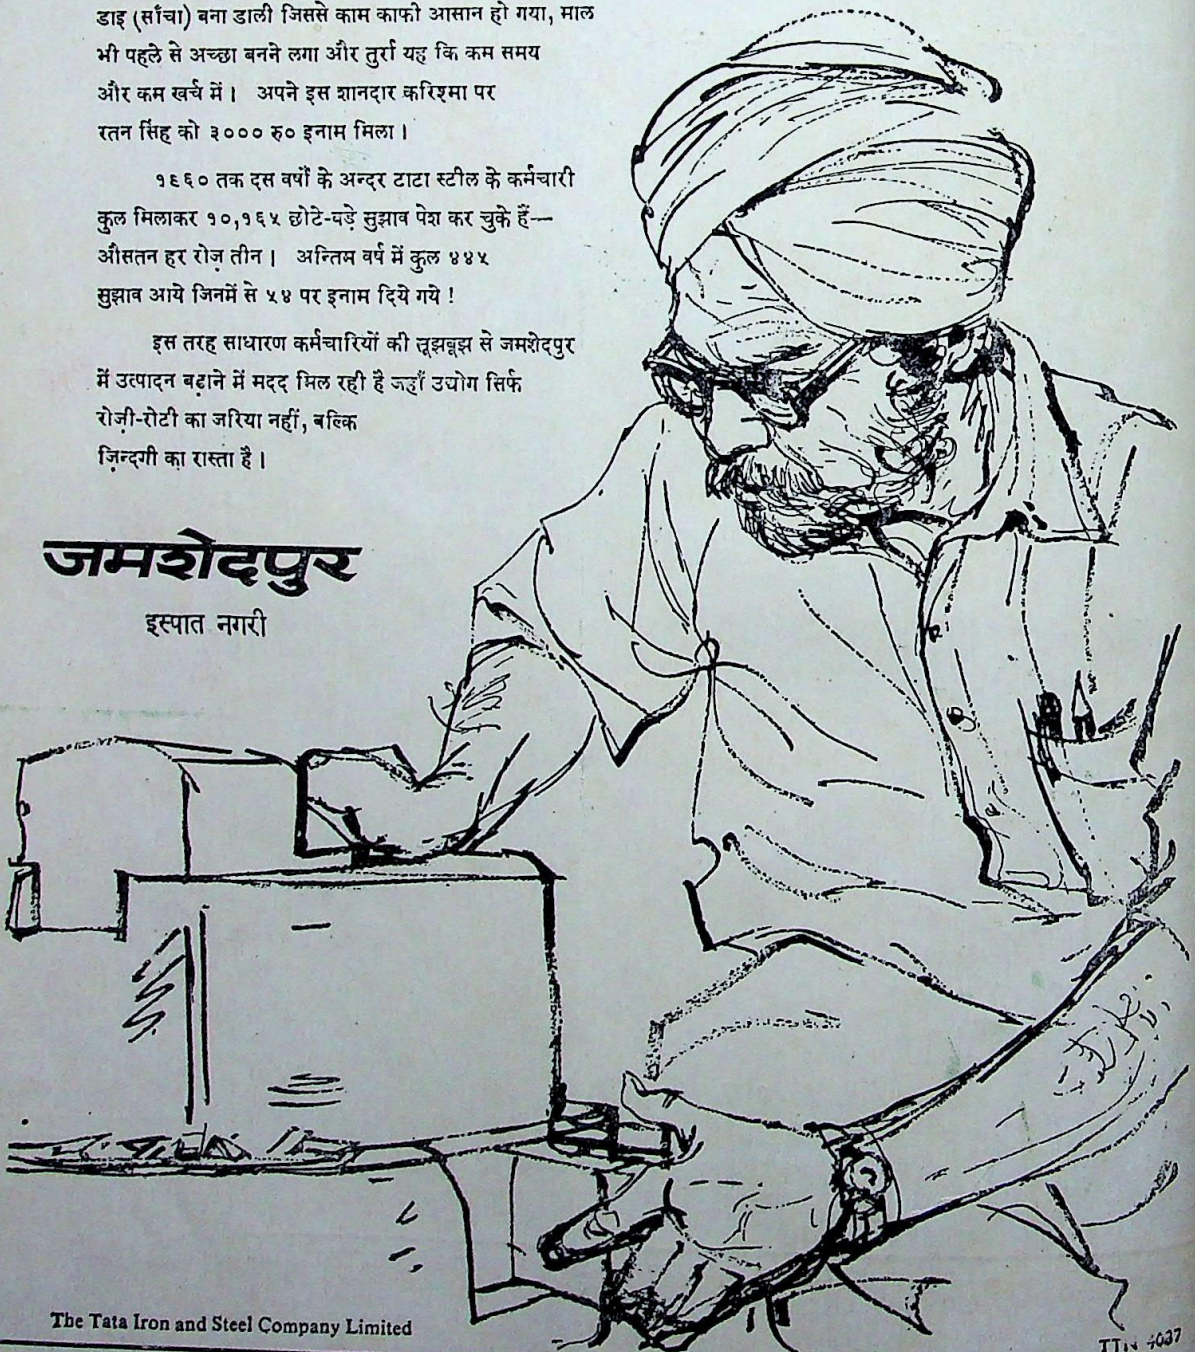 डाइ (साँचा) बना डाली जिससे काम काफी आसान हो गया, माल
भी पहले से अच्छा बनने लगा और तुर्रा यह कि कम समय
और कम खर्च में। अपने इस शानदार करिश्मा पर
रतन सिंह को ३००० रु० इनाम मिला।
१९६० तक दस वर्षों के अन्दर टाटा स्टील के कर्मचारी
कुल मिलाकर १०,१६५ छोटे-बड़े सुझाव पेश कर चुके हैं—
औसतन हर रोज़ तीन। अन्तिम वर्ष में कुल ४४५
सुझाव आये जिनमें से ५४ पर इनाम दिये गये!
इस तरह साधारण कर्मचारियों की सूझबूझ से जमशेदपुर
में उत्पादन बढ़ाने में मदद मिल रही है जहाँ उद्योग सिर्फ
रोज़ी-रोटी का जरिया नहीं, बल्कि
ज़िन्दगी का रास्ता है।
जमशेदपुर
इस्पात नगरी
The Tata Iron and Steel Company Limited